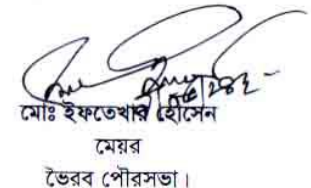 মোঃ ইফতেখার হোসেন
মেয়র
ভৈরব পৌরসভা।